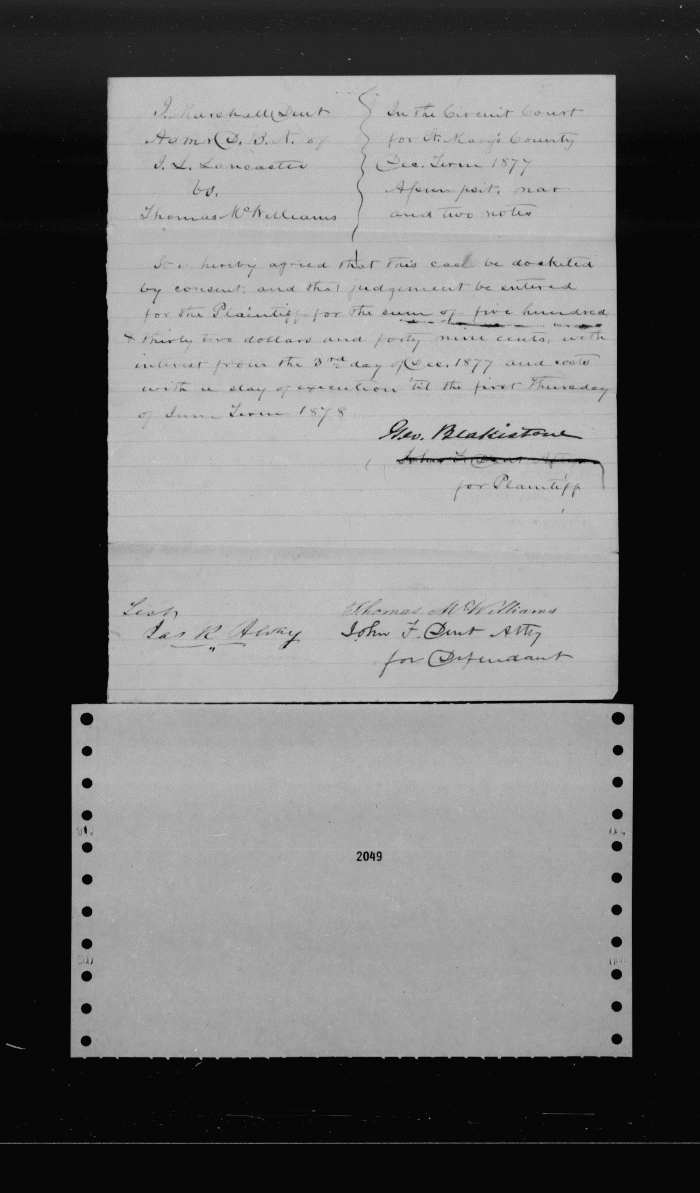 J. Marshall Dent
Admr D. B. N. of
J. L. Lancaster
vs.
Thomas McWilliams
In the Circuit Court
for St. Mary's County
Dec. Term 1877
Assumpsit. nar
and two notes
It is hereby agreed that this case be docketed
by consent, and that judgement be entered
for the Plaintiff for the sum of five hundred
& thirty two dollars and forty nine cents, with
interest from the 3rd day of Dec. 1877 and costs
with a stay of execution 'til the first Thursday
of June Term 1878
Geo. Blakistone
John F. Dent Atty
for Plaintiff
Test
Jas R Alvey
Thomas McWilliams
John F. Dent Atty
for Defendant
2049